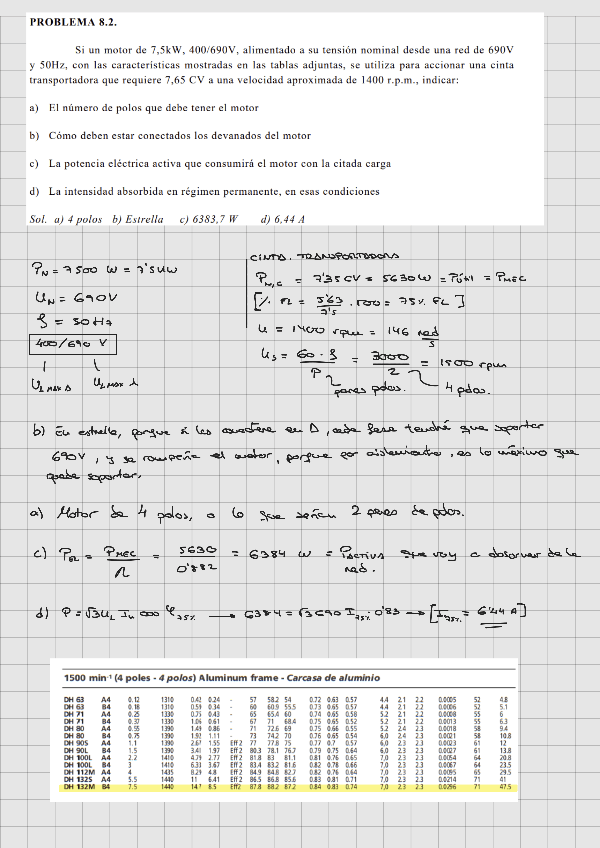 PROBLEMA 8.2.
Si un motor de 7,5kW, 400/690V, alimentado a su tensión nominal desde una red de 690V
y 50Hz, con las características mostradas en las tablas adjuntas, se utiliza para accionar una cinta
transportadora que requiere 7,65 CV a una velocidad aproximada de 1400 r.p.m., indicar:
a) El número de polos que debe tener el motor
b) Cómo deben estar conectados los devanados del motor
c) La potencia eléctrica activa que consumirá el motor con la citada carga
d) La intensidad absorbida en régimen permanente, en esas condiciones
Sol. a) 4 polos b) Estrella c) 6383,7 W d) 6,44 A
PN = 7500 W = 7'5 kW
UN = 690V
f = 50Hz
400/690 V
UL MAX Δ UL MAX λ
CINTA TRANSPORTADORA
= 7'35 CV = 5630W = = PMEC
[% FL = 5'63/7'5 . 100 = 75% FL]
u = 1400 rpm = 146 rad/s
us = 60 · f / P = 3000/2 = 1500 rpm
pares polos. 4 polos.
b) En estrella, porque si los conectara en D, cada fase tendrá que soportar
690V, y se rompería el motor, porque por aislamiento, es lo máximo que
puede soportar.
a) Motor de 4 polos, o lo que serían 2 pares de polos.
c) = PMEC/η = 5630/0'882 = 6384 W = PACTIVA que voy a absorver de la
red.
d) P = √3 UL IN cos φ75% → 6384 = √3 690 I75% · 0'83 → [I75% = 6'44 A]
1500 min-1 (4 poles - 4 polos) Aluminum frame - Carcasa de aluminio
DH 63 A4 0.12 1310 0.42 0.24 - 57 58.2 54 0.72 0.63 0.57 4.4 2.1 2.2 0.0005 52 4.8
DH 63 B4 0.18 1310 0.59 0.34 - 60 60.9 55.5 0.73 0.65 0.57 4.4 2.1 2.2 0.0006 52 5.1
DH 71 A4 0.25 1330 0.75 0.43 - 65 65.4 60 0.74 0.65 0.58 5.2 2.1 2.2 0.0008 55 6
DH 71 B4 0.37 1330 1.06 0.61 - 67 71 68.4 0.75 0.65 0.52 5.2 2.1 2.2 0.0013 55 6.3
DH 80 A4 0.55 1390 1.49 0.86 - 71 72.6 69 0.75 0.66 0.55 5.2 2.4 2.3 0.0018 58 9.4
DH 80 B4 0.75 1390 1.92 1.11 - 73 74.2 70 0.76 0.65 0.54 6.0 2.4 2.3 0.0021 58 10.8
DH 90S A4 1.1 1390 2.67 1.55 Eff2 77 77.8 75 0.77 0.7 0.57 6.0 2.3 2.3 0.0023 61 12
DH 90L B4 1.5 1390 3.41 1.97 Eff2 80.3 78.1 76.7 0.79 0.75 0.64 6.0 2.3 2.3 0.0027 61 13.8
DH 100L A4 2.2 1410 4.79 2.77 Eff2 81.8 83 81.1 0.81 0.76 0.65 7,0 2.3 2.3 0.0054 64 20.8
DH 100L B4 3 1410 6.33 3.67 Eff2 83.4 83.2 81.6 0.82 0.78 0.66 7,0 2.3 2.3 0.0067 64 23.5
DH 112M A4 4 1435 8.29 4.8 Eff2 84.9 84.8 82.7 0.82 0.76 0.64 7,0 2.3 2.3 0.0095 65 29.5
DH 132S A4 5.5 1440 11 6.41 Eff2 86.5 86.8 85.6 0.83 0.81 0.71 7,0 2.3 2.3 0.0214 71 41
DH 132M B4 7.5 1440 14.7 8.5 Eff2 87.8 88.2 87.2 0.84 0.83 0.74 7,0 2.3 2.3 0.0296 71 47.5